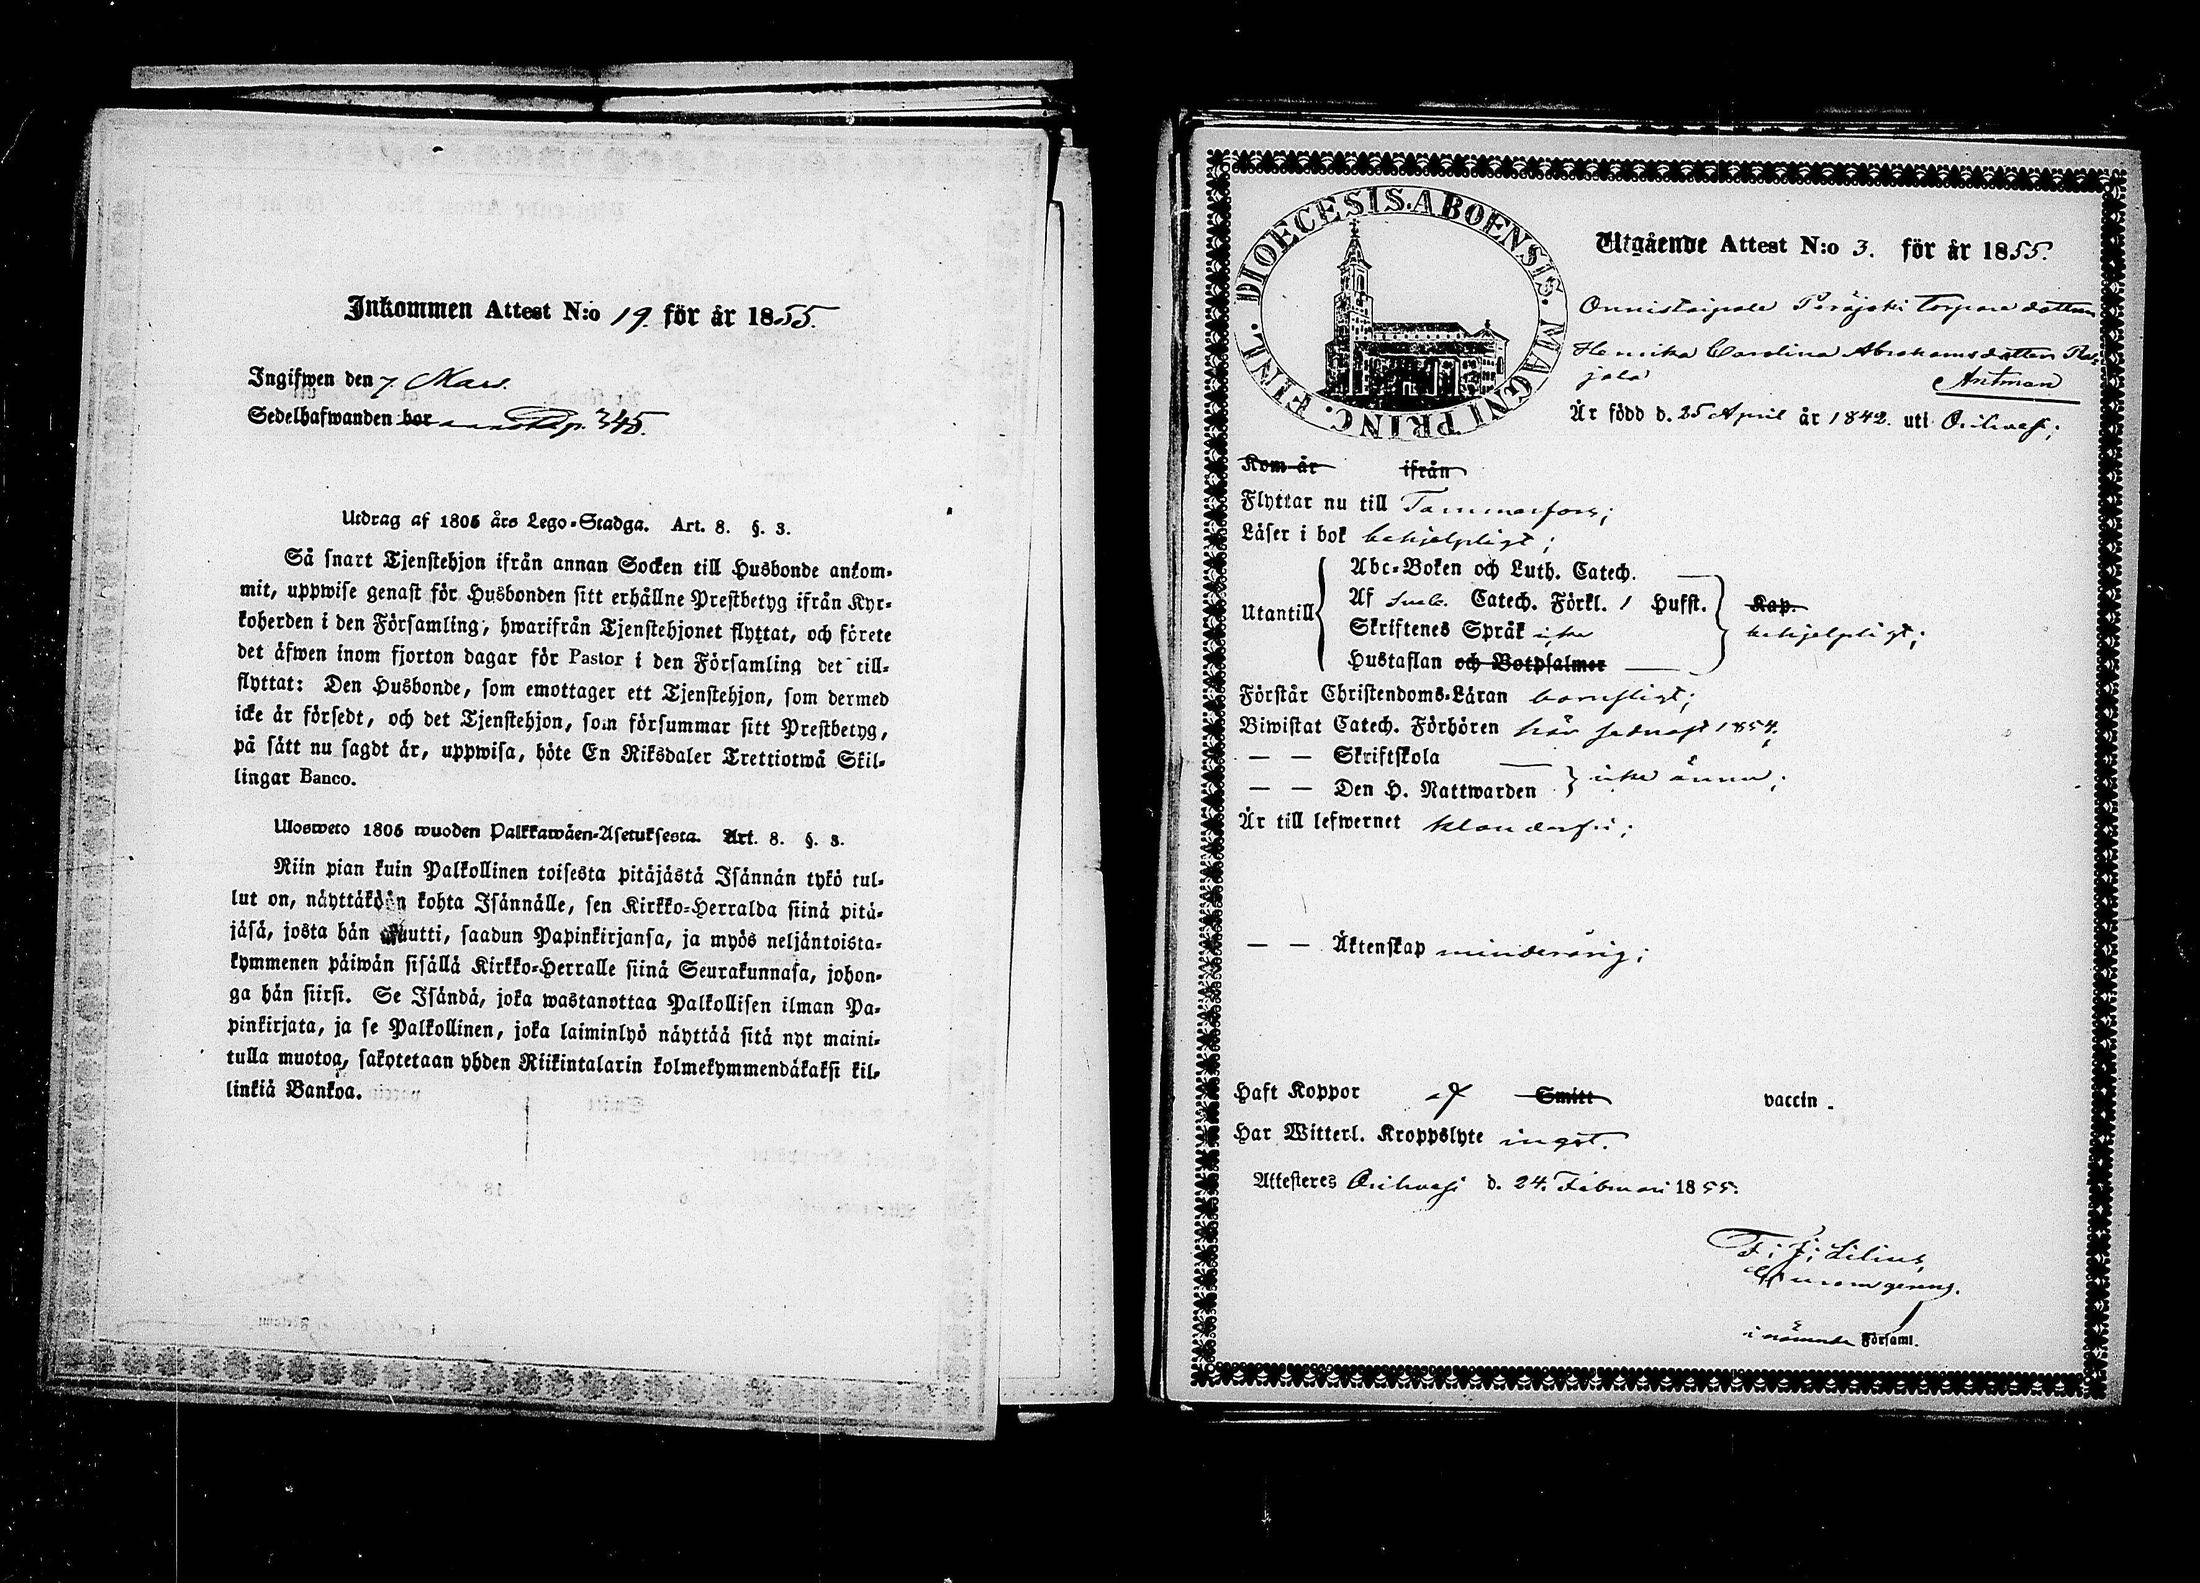 Inkommen Attest N:o 19. för år 1855.
Ingifwen den 7. Mars.
Sedelhafwanden bor pag. 345.
Utdrag af 1805 års Lego-Stadga. Art. 8. §. 3.
Så snart Tjenstehjon ifrån annan Socken till Husbonde ankom-
mit, uppwise genast för Husbonden sitt erhållne Prestbetyg ifrån Kyr-
koherden i den Församling, hwarifrån Tjenstehjonet flyttat, och förete
det äfwen inom fjorton dagar för Pastor i den Församling det till-
flyttat: Den Husbonde, som emottager ett Tjenstehjon, som dermed
icke är försedt, och det Tjenstehjon, som försummar sitt Prestbetyg,
på sätt nu sagdt är, uppwisa, böte En Riksdaler Trettiotwå Skil-
lingar Banco.
Ulosweto 1805 wuoden Palkkawäen-Asetuksesta. Art. 8. §. 3.
Niin pian kuin Palkollinen toisesta pitäjästä Isännän tykö tul-
lut on, näyttäköön kohta Isännälle, sen Kirkko-Herralda siinä pitä-
jäsä, josta hän muutti, saadun Papinkirjansa, ja myös neljäntoista-
kymmenen päiwän sisällä Kirkko-Herralle siinä Seurakunnasa, johon-
ga hän siirsi. Se Isändä, joka wastanottaa Palkollisen ilman Pa-
pinkirjata, ja se Palkollinen, joka laiminlyö näyttää sitä nyt maini-
tulla muotoa, sakotetaan yhden Riikintalarin kolmekymmendäkaksi kil-
linkiä Bankoa.
DIOECESIS. ABOENSIS. MAGNI PRINC. FINL.
Utgående Attest N:o 3. för år 1855.
Onnistaipale Peräjoki torpare dottren
Henrika Carolina Abrahamsdotter Ra-
jala
Antman
Är född d. 25 April år 1842. uti Orihvesi;
Kom år ifrån
Flyttar nu till Tammerfors;
Läser i bok behjelpligt;
Utantill
Abc-Boken och Luth. Catech.
Af Sveb. Catech. Förkl. 1 Hufst.
Skriftenes Språk icke
Hustaflan och Botpsalmer
Kap.
behjelpligt;
Förstår Christendoms-Läran barnsligt;
Biwistat Catech. Förhören här sednast 1854;
— — Skriftskola
— — Den H. Nattwarden icke ännu;
Är till lefwernet klanderfri;
— — Äktenskap minderårig;
Haft Koppor af Smitt vaccin.
Har Witterl. Kroppslyte intet.
Attesteres Orihvesi d. 24. Februari 1855.
F. J. Lilius,
i nämnde Församl.